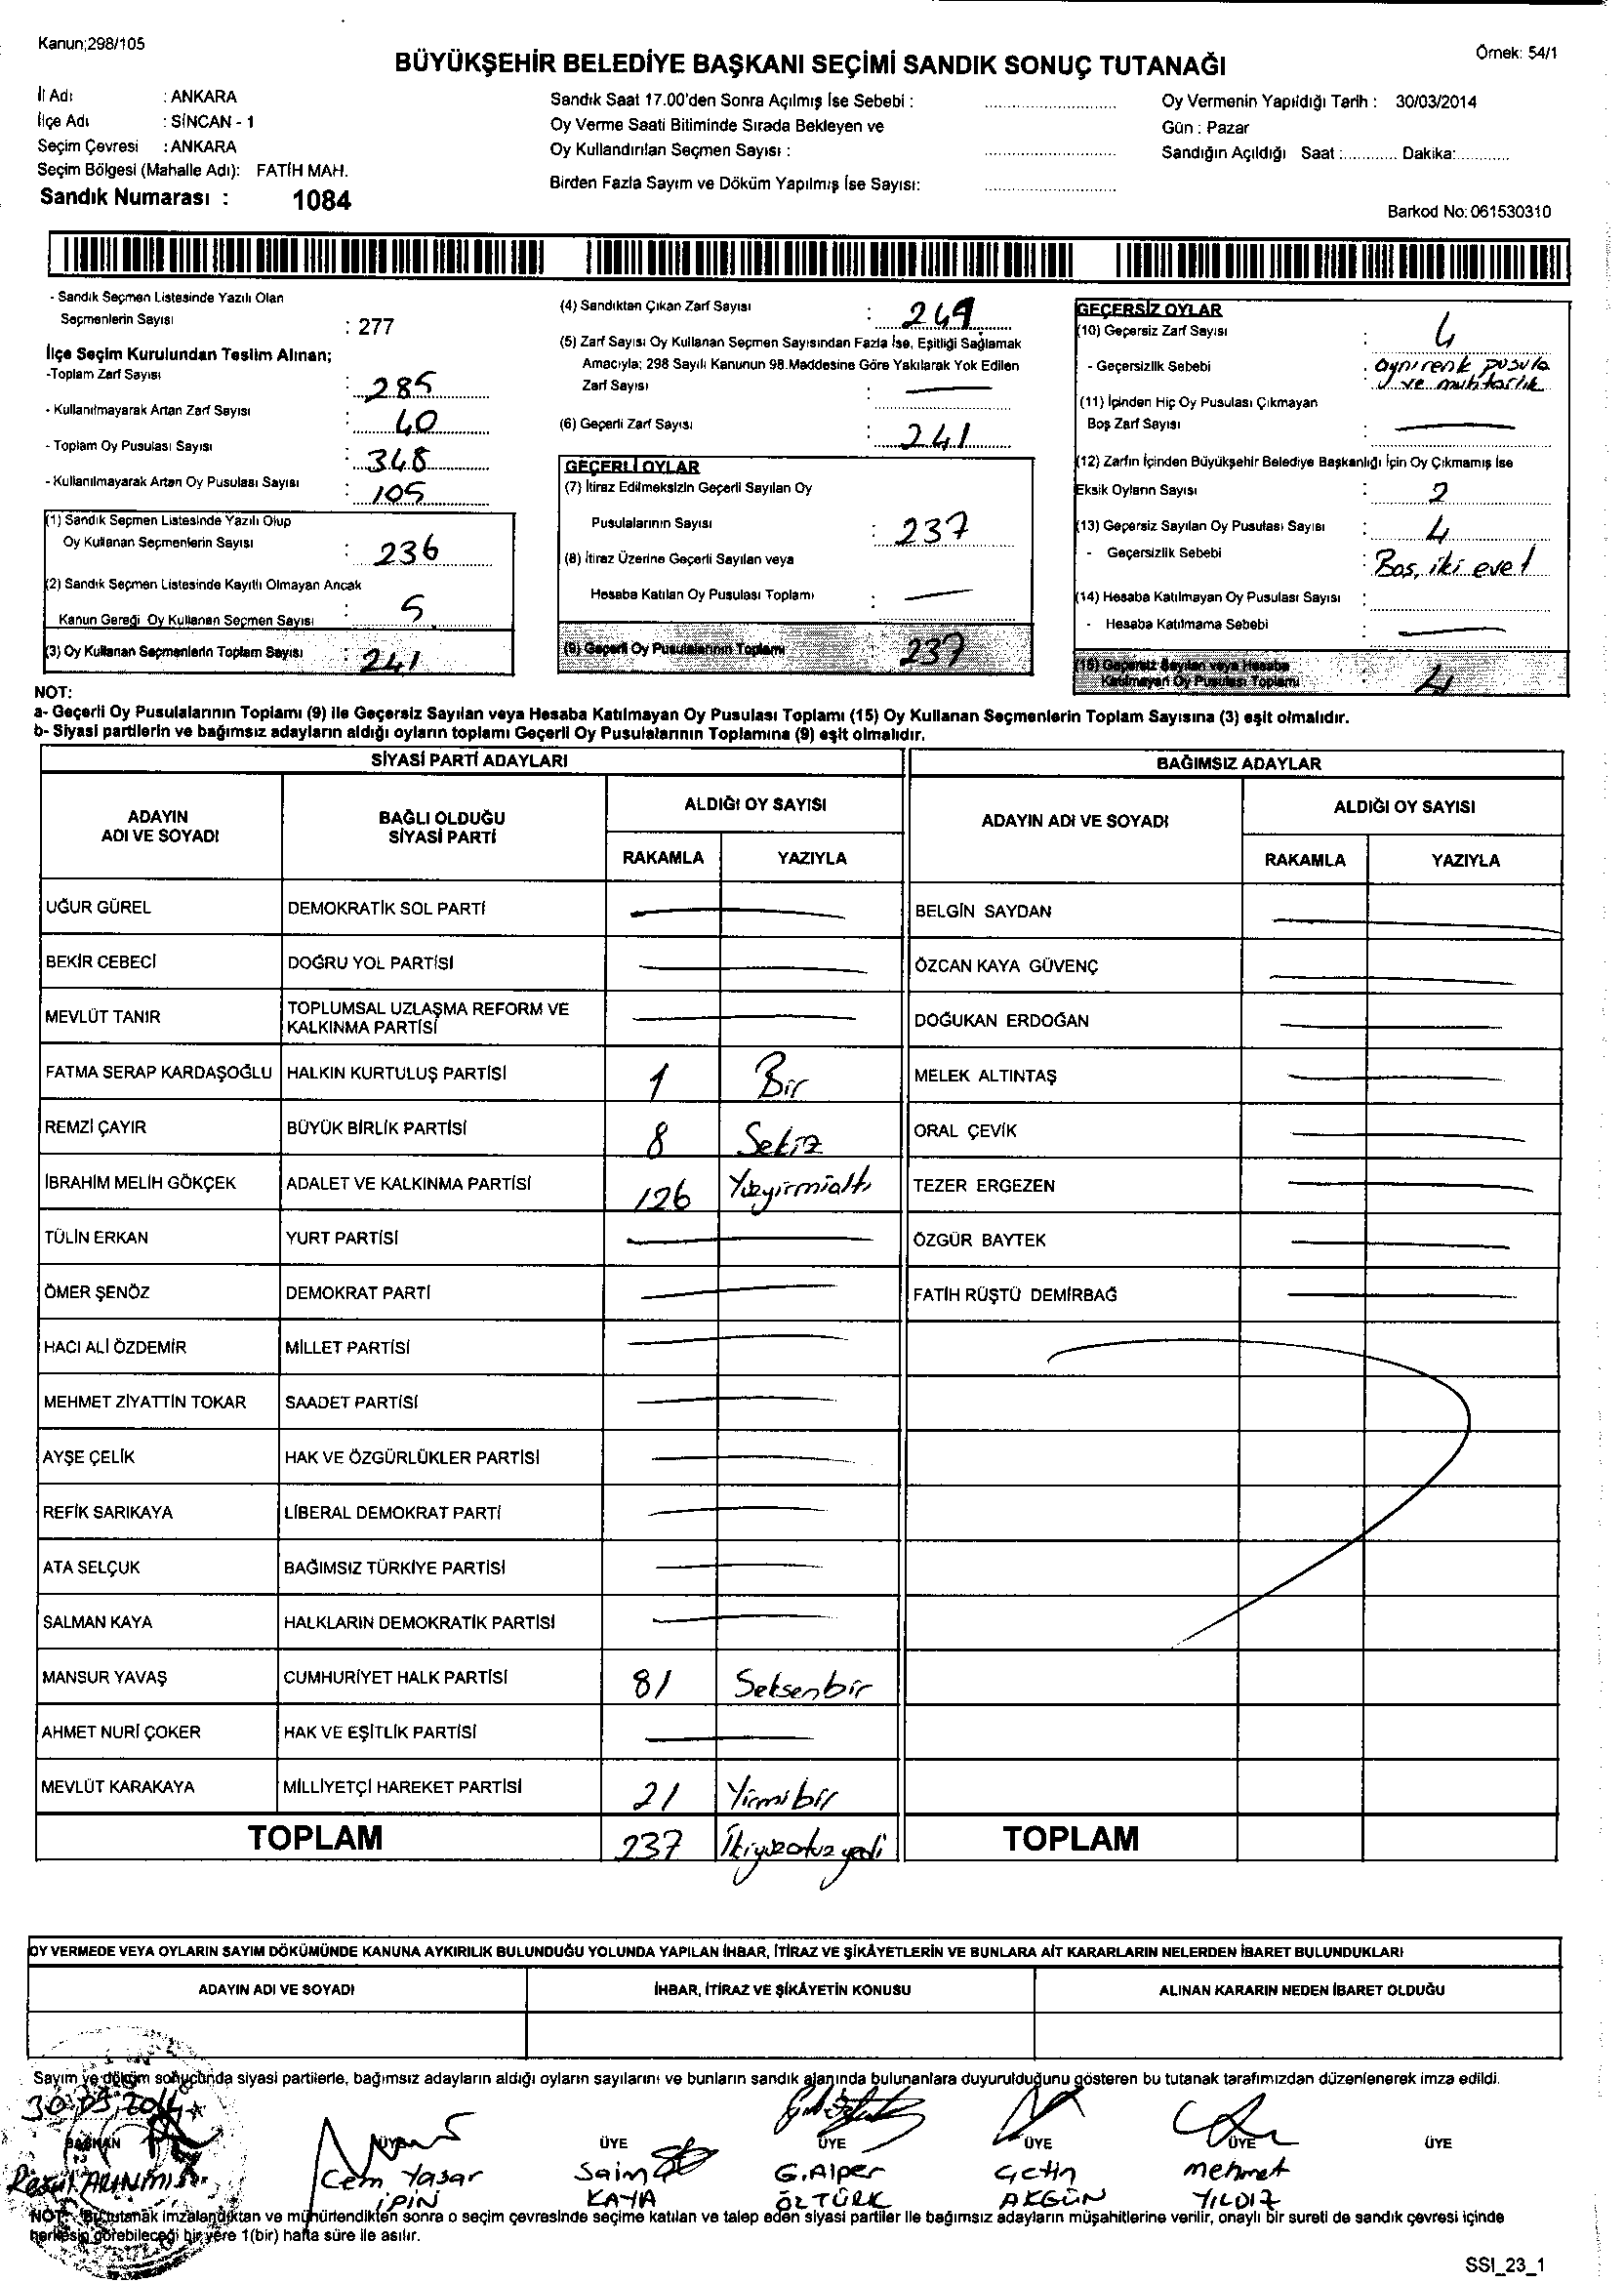 Kanun;298/105
Örnek: 54/1
BÜYÜKŞEHİR BELEDİYE BAŞKANI SEÇİMİ SANDIK SONUÇ TUTANAĞI
İl Adı : ANKARA
İlçe Adı : SİNCAN - 1
Seçim Çevresi : ANKARA
Seçim Bölgesi (Mahalle Adı): FATİH MAH.
Sandık Numarası : 1084
Sandık Saat 17.00'den Sonra Açılmış İse Sebebi :
Oy Verme Saati Bitiminde Sırada Bekleyen ve
Oy Kullandırılan Seçmen Sayısı :
Birden Fazla Sayım ve Döküm Yapılmış İse Sayısı:
Oy Vermenin Yapıldığı Tarih : 30/03/2014
Gün : Pazar
Sandığın Açıldığı Saat :............ Dakika:...........
Barkod No: 061530310
- Sandık Seçmen Listesinde Yazılı Olan
Seçmenlerin Sayısı : 277
İlçe Seçim Kurulundan Teslim Alınan;
-Toplam Zarf Sayısı : 285
- Kullanılmayarak Artan Zarf Sayısı : 40
- Toplam Oy Pusulası Sayısı : 348
- Kullanılmayarak Artan Oy Pusulası Sayısı : 105
(1) Sandık Seçmen Listesinde Yazılı Olup
Oy Kullanan Seçmenlerin Sayısı : 236
(2) Sandık Seçmen Listesinde Kayıtlı Olmayan Ancak
Kanun Gereği Oy Kullanan Seçmen Sayısı : 5
(3) Oy Kullanan Seçmenlerin Toplam Sayısı : 241
(4) Sandıktan Çıkan Zarf Sayısı :
(5) Zarf Sayısı Oy Kullanan Seçmen Sayısından Fazla İse, Eşitliği Sağlamak
Amacıyla; 298 Sayılı Kanunun 98.Maddesine Göre Yakılarak Yok Edilen
Zarf Sayısı : —
(6) Geçerli Zarf Sayısı : 241
GEÇERLİ OYLAR
(7) İtiraz Edilmeksizin Geçerli Sayılan Oy
Pusulalarının Sayısı : 237
(8) İtiraz Üzerine Geçerli Sayılan veya
Hesaba Katılan Oy Pusulası Toplamı : —
(9) Geçerli Oy Pusulalarının Toplamı 237
GEÇERSİZ OYLAR
(10) Geçersiz Zarf Sayısı : 4
- Geçersizlik Sebebi : aynı renk pusula
ve muhtarlık
(11) İçinden Hiç Oy Pusulası Çıkmayan
Boş Zarf Sayısı : —
(12) Zarfın İçinden Büyükşehir Belediye Başkanlığı İçin Oy Çıkmamış İse
Eksik Oyların Sayısı : 2
(13) Geçersiz Sayılan Oy Pusulası Sayısı : 4
- Geçersizlik Sebebi : Boş, iki evet
(14) Hesaba Katılmayan Oy Pusulası Sayısı :
- Hesaba Katılmama Sebebi : —
(15) Geçersiz Sayılan veya Hesaba
Katılmayan Oy Pusulası Toplamı : 4
NOT:
a- Geçerli Oy Pusulalarının Toplamı (9) ile Geçersiz Sayılan veya Hesaba Katılmayan Oy Pusulası Toplamı (15) Oy Kullanan Seçmenlerin Toplam Sayısına (3) eşit olmalıdır.
b- Siyasi partilerin ve bağımsız adayların aldığı oyların toplamı Geçerli Oy Pusulalarının Toplamına (9) eşit olmalıdır.
SİYASİ PARTİ ADAYLARI
ADAYIN ADI VE SOYADI
BAĞLI OLDUĞU SİYASİ PARTİ
ALDIĞI OY SAYISI
RAKAMLA YAZIYLA
UĞUR GÜREL DEMOKRATİK SOL PARTİ —
BEKİR CEBECİ DOĞRU YOL PARTİSİ —
MEVLÜT TANIR TOPLUMSAL UZLAŞMA REFORM VE KALKINMA PARTİSİ —
FATMA SERAP KARDAŞOĞLU HALKIN KURTULUŞ PARTİSİ 1 Bir
REMZİ ÇAYIR BÜYÜK BİRLİK PARTİSİ 8 Sekiz
İBRAHİM MELİH GÖKÇEK ADALET VE KALKINMA PARTİSİ 126 Yüzyirmialtı
TÜLİN ERKAN YURT PARTİSİ —
ÖMER ŞENÖZ DEMOKRAT PARTİ —
HACI ALİ ÖZDEMİR MİLLET PARTİSİ —
MEHMET ZİYATTİN TOKAR SAADET PARTİSİ —
AYŞE ÇELİK HAK VE ÖZGÜRLÜKLER PARTİSİ —
REFİK SARIKAYA LİBERAL DEMOKRAT PARTİ —
ATA SELÇUK BAĞIMSIZ TÜRKİYE PARTİSİ —
SALMAN KAYA HALKLARIN DEMOKRATİK PARTİSİ —
MANSUR YAVAŞ CUMHURİYET HALK PARTİSİ 81 Seksenbir
AHMET NURİ ÇOKER HAK VE EŞİTLİK PARTİSİ —
MEVLÜT KARAKAYA MİLLİYETÇİ HAREKET PARTİSİ 21 Yirmibir
TOPLAM 237 İkiyüzotuzyedi
BAĞIMSIZ ADAYLAR
ADAYIN ADI VE SOYADI
ALDIĞI OY SAYISI
RAKAMLA YAZIYLA
BELGİN SAYDAN —
ÖZCAN KAYA GÜVENÇ —
DOĞUKAN ERDOĞAN —
MELEK ALTINTAŞ —
ORAL ÇEVİK —
TEZER ERGEZEN —
ÖZGÜR BAYTEK —
FATİH RÜŞTÜ DEMİRBAĞ —
TOPLAM
OY VERMEDE VEYA OYLARIN SAYIM DÖKÜMÜNDE KANUNA AYKIRILIK BULUNDUĞU YOLUNDA YAPILAN İHBAR, İTİRAZ VE ŞİKÂYETLERİN VE BUNLARA AİT KARARLARIN NELERDEN İBARET BULUNDUKLARI
ADAYIN ADI VE SOYADI İHBAR, İTİRAZ VE ŞİKÂYETİN KONUSU ALINAN KARARIN NEDEN İBARET OLDUĞU
Sayım ve döküm sonucunda siyasi partilerle, bağımsız adayların aldığı oyların sayılarını ve bunların sandık alanında bulunanlara duyurulduğunu gösteren bu tutanak tarafımızdan düzenlenerek imza edildi.
30.03.2014
BAŞKAN ÜYE ÜYE ÜYE ÜYE ÜYE ÜYE
Resul Cem Yaşar Saim G.Alper Çetin Mehmet
İPİN KAYA ÖZTÜRK AKGÜN YILDIZ
NOT: Bu tutanak imzalandıktan ve mühürlendikten sonra o seçim çevresinde seçime katılan ve talep eden siyasi partiler ile bağımsız adayların müşahitlerine verilir, onaylı bir sureti de sandık çevresi içinde
herkesin görebileceği bir yere 1(bir) hafta süre ile asılır.
SSI_23_1